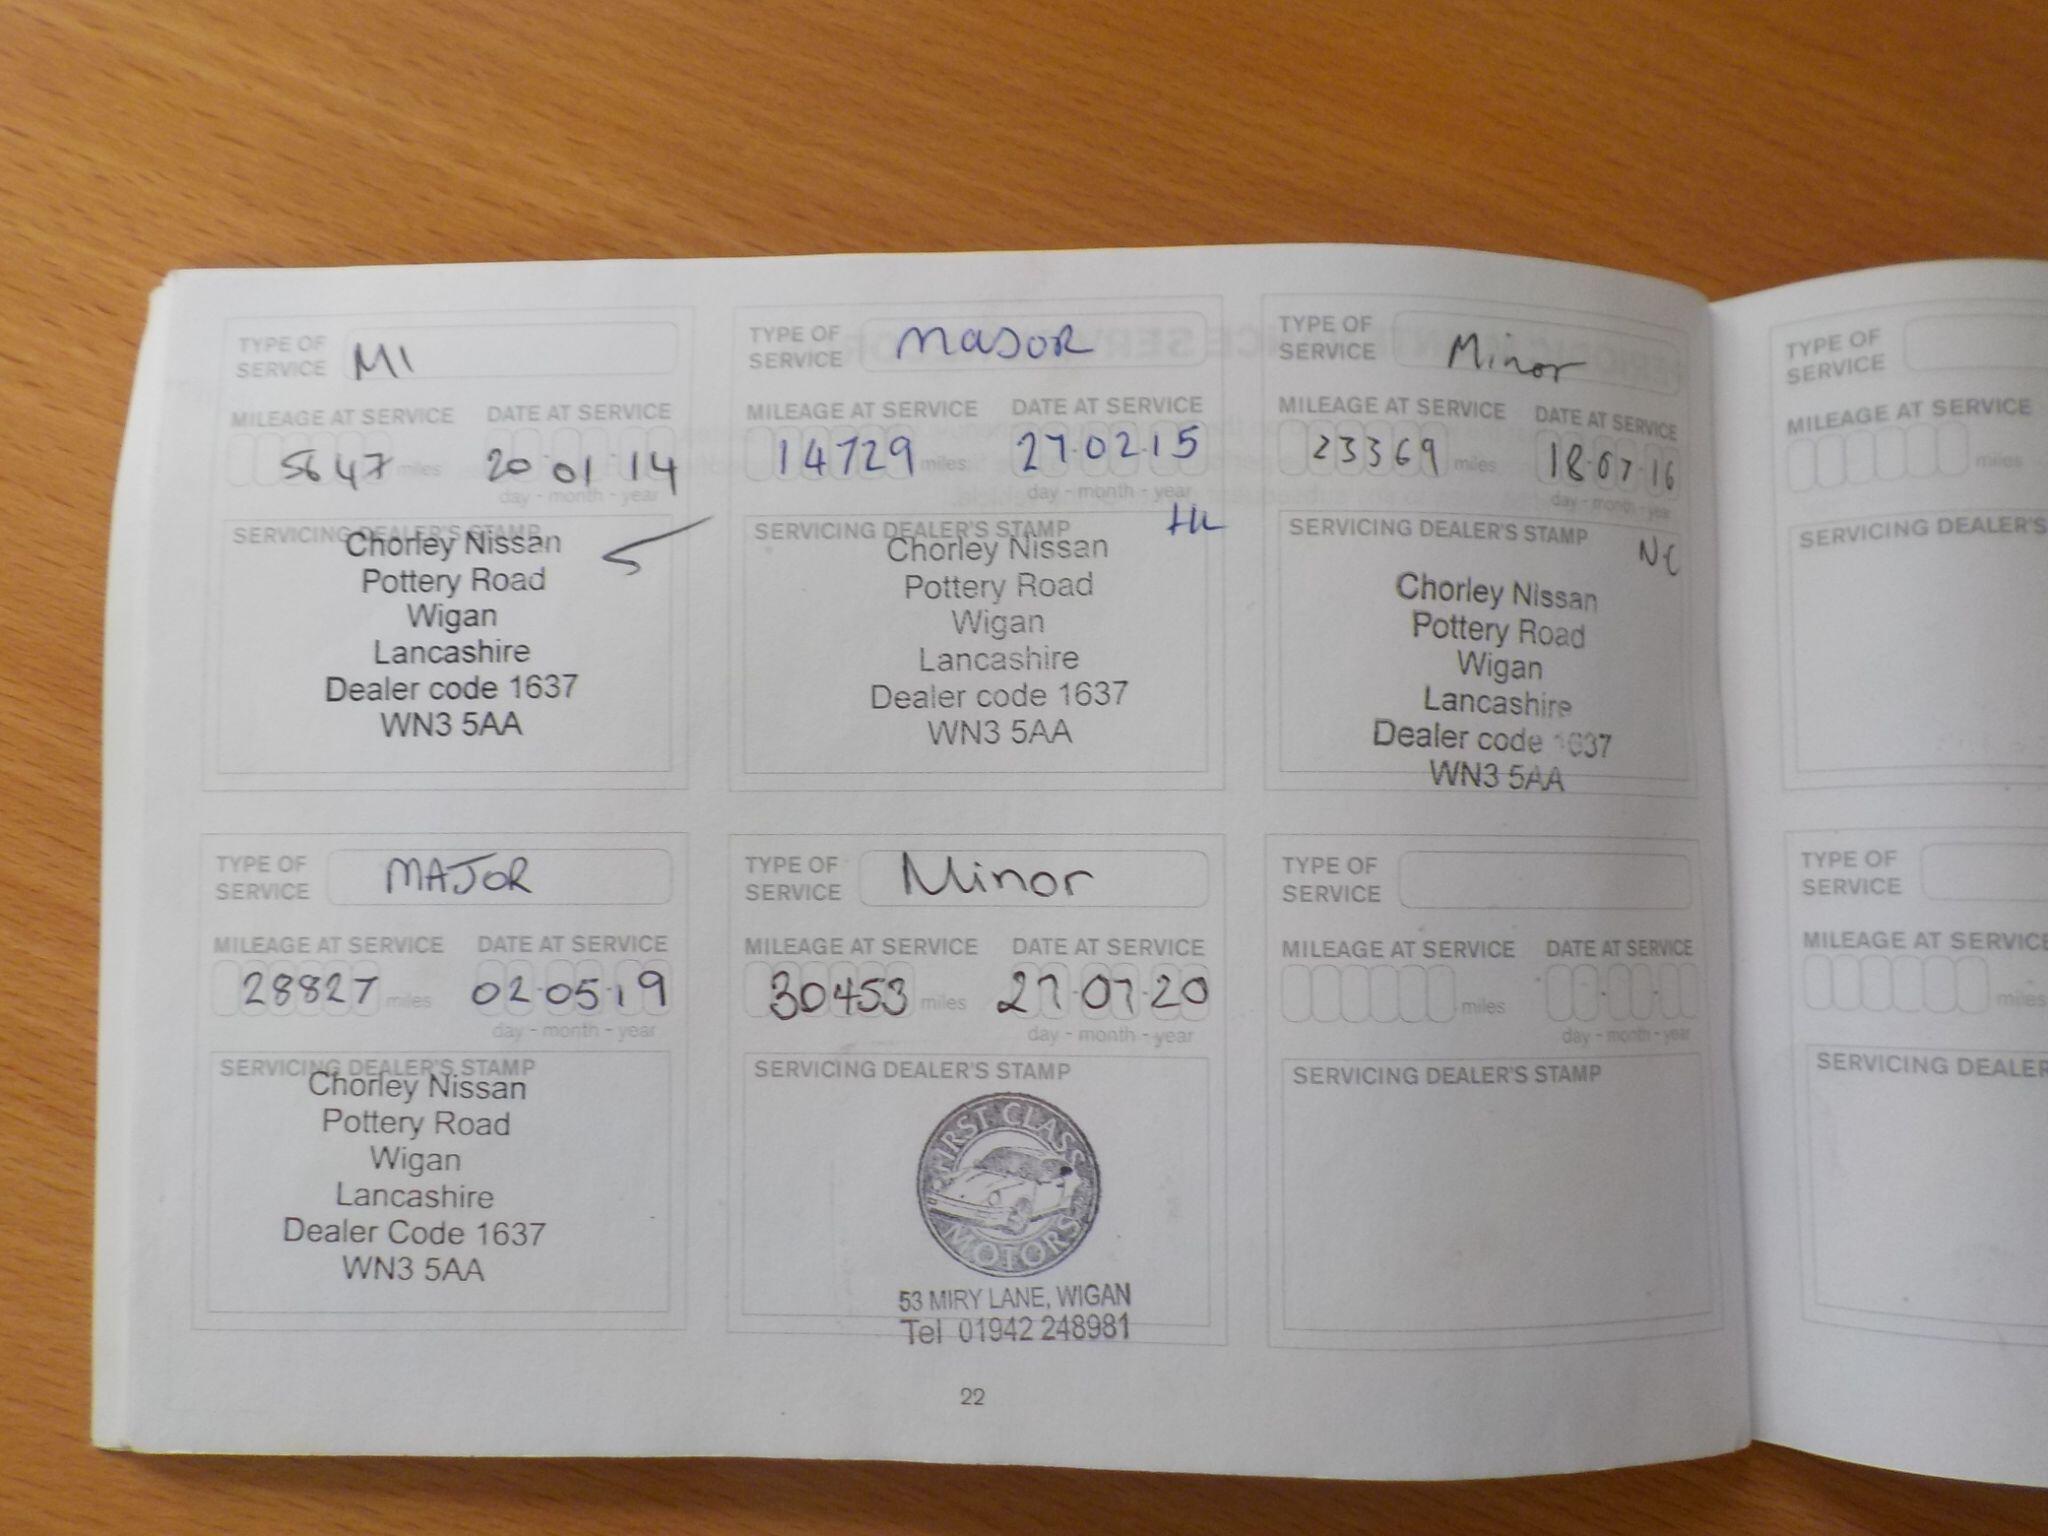 TYPE OF SERVICE M1
MILEAGE AT SERVICE DATE AT SERVICE
5647 miles 20 01 14
day - month - year
SERVICING DEALER'S STAMP
Chorley Nissan
Pottery Road
Wigan
Lancashire
Dealer code 1637
WN3 5AA
TYPE OF SERVICE MAJOR
MILEAGE AT SERVICE DATE AT SERVICE
14729 miles 27.02.15
day - month - year
SERVICING DEALER'S STAMP
Chorley Nissan
Pottery Road
Wigan
Lancashire
Dealer code 1637
WN3 5AA
TYPE OF SERVICE Minor
MILEAGE AT SERVICE DATE AT SERVICE
23369 miles 18.07.16
day - month - year
SERVICING DEALER'S STAMP
Chorley Nissan
Pottery Road
Wigan
Lancashire
Dealer code 1637
WN3 5AA
TYPE OF SERVICE MAJOR
MILEAGE AT SERVICE DATE AT SERVICE
28827 miles 02.05.19
day - month - year
SERVICING DEALER'S STAMP
Chorley Nissan
Pottery Road
Wigan
Lancashire
Dealer Code 1637
WN3 5AA
TYPE OF SERVICE Minor
MILEAGE AT SERVICE DATE AT SERVICE
30453 miles 27.07.20
day - month - year
SERVICING DEALER'S STAMP
FIRST CLASS
MOTORS
53 MIRY LANE, WIGAN
Tel 01942 248981
TYPE OF SERVICE
MILEAGE AT SERVICE DATE AT SERVICE
miles
day - month - year
SERVICING DEALER'S STAMP
22
TYPE OF SERVICE
MILEAGE AT SERVICE
miles
SERVICING DEALER'S
TYPE OF SERVICE
MILEAGE AT SERVICE
miles
SERVICING DEALER